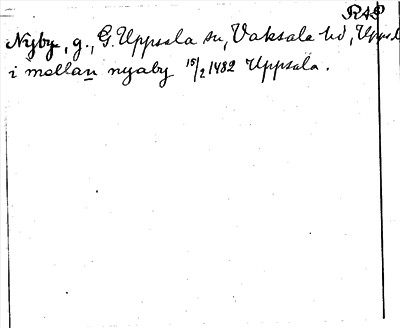 RAP
Nyby, g., G. Uppsala sn, Vaksala hd, Uppsal
i mellan nyaby 15/2 1482 Uppsala.